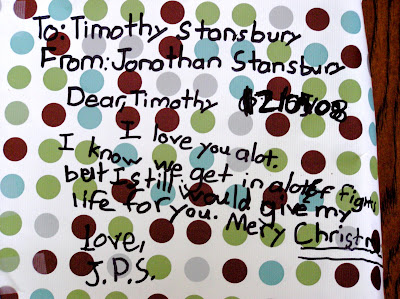 To: Timothy Stansbury
From: Jonathan Stansbury
Dear, Timothy
I love you alot.
I know we get in alot of fights
but I still would give my
life for you. Mery Christm
Love,
J.P.S.